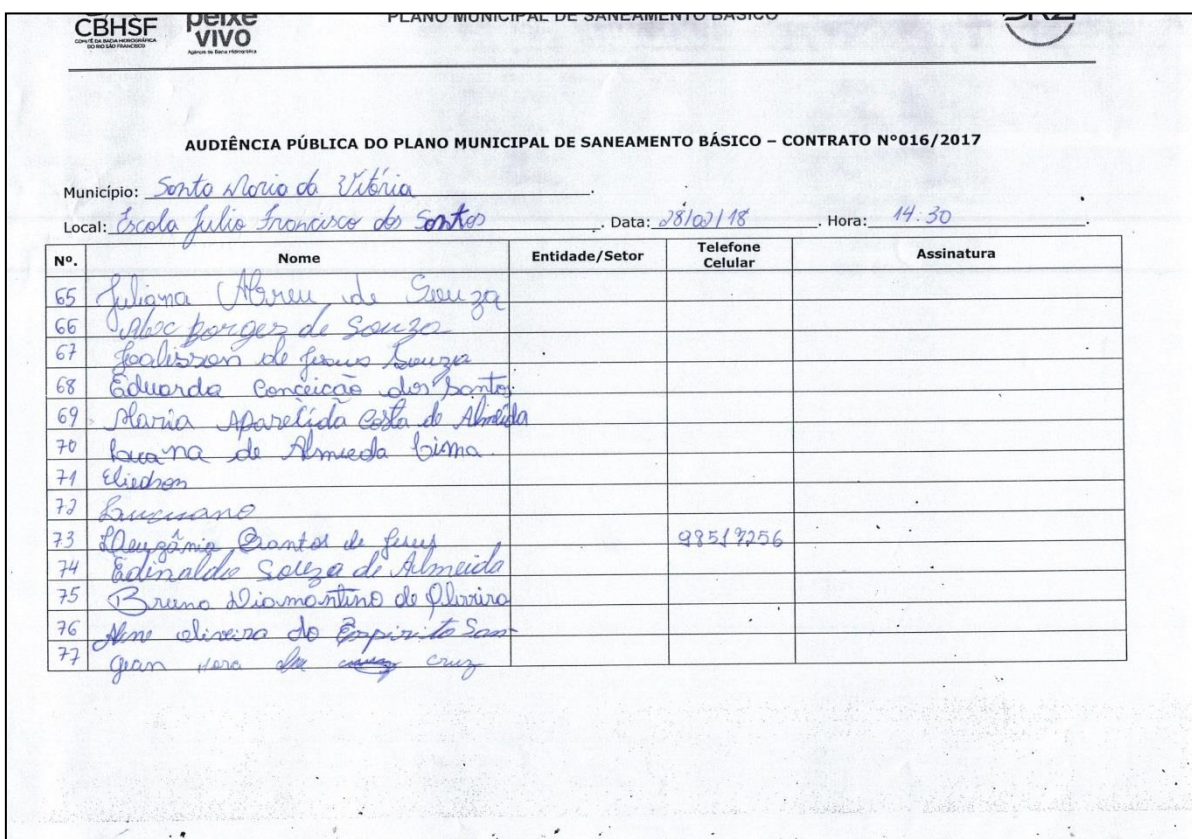 CBHSF
COMITÊ DA BACIA HIDROGRÁFICA
DO RIO SÃO FRANCISCO
peixe
vivo
Agência de Bacia Hidrográfica
PLANO MUNICIPAL DE SANEAMENTO BÁSICO
AUDIÊNCIA PÚBLICA DO PLANO MUNICIPAL DE SANEAMENTO BÁSICO – CONTRATO Nº016/2017
Município: Santa Maria da Vitória.
Local: Escola Julio Francisco dos Santos. Data: 28/02/18. Hora: 14:30.
Nº. Nome Entidade/Setor Telefone Celular Assinatura
65 Juliana Abreu de Souza
66 borges de Souza
67 Joalisson de Jesus Souza
68 Eduarda Conceição dos Santos
69 Maria Aparecida Costa de Almeida
70 Luana de Almeida Lima
71 Eliedson
72 Luciano
73 Santos de Jesus 98517256
74 Edinaldo Souza de Almeida
75 Bruno Diamantino de Oliveira
76 Aline oliveira do Espirito San
77 gean cruz